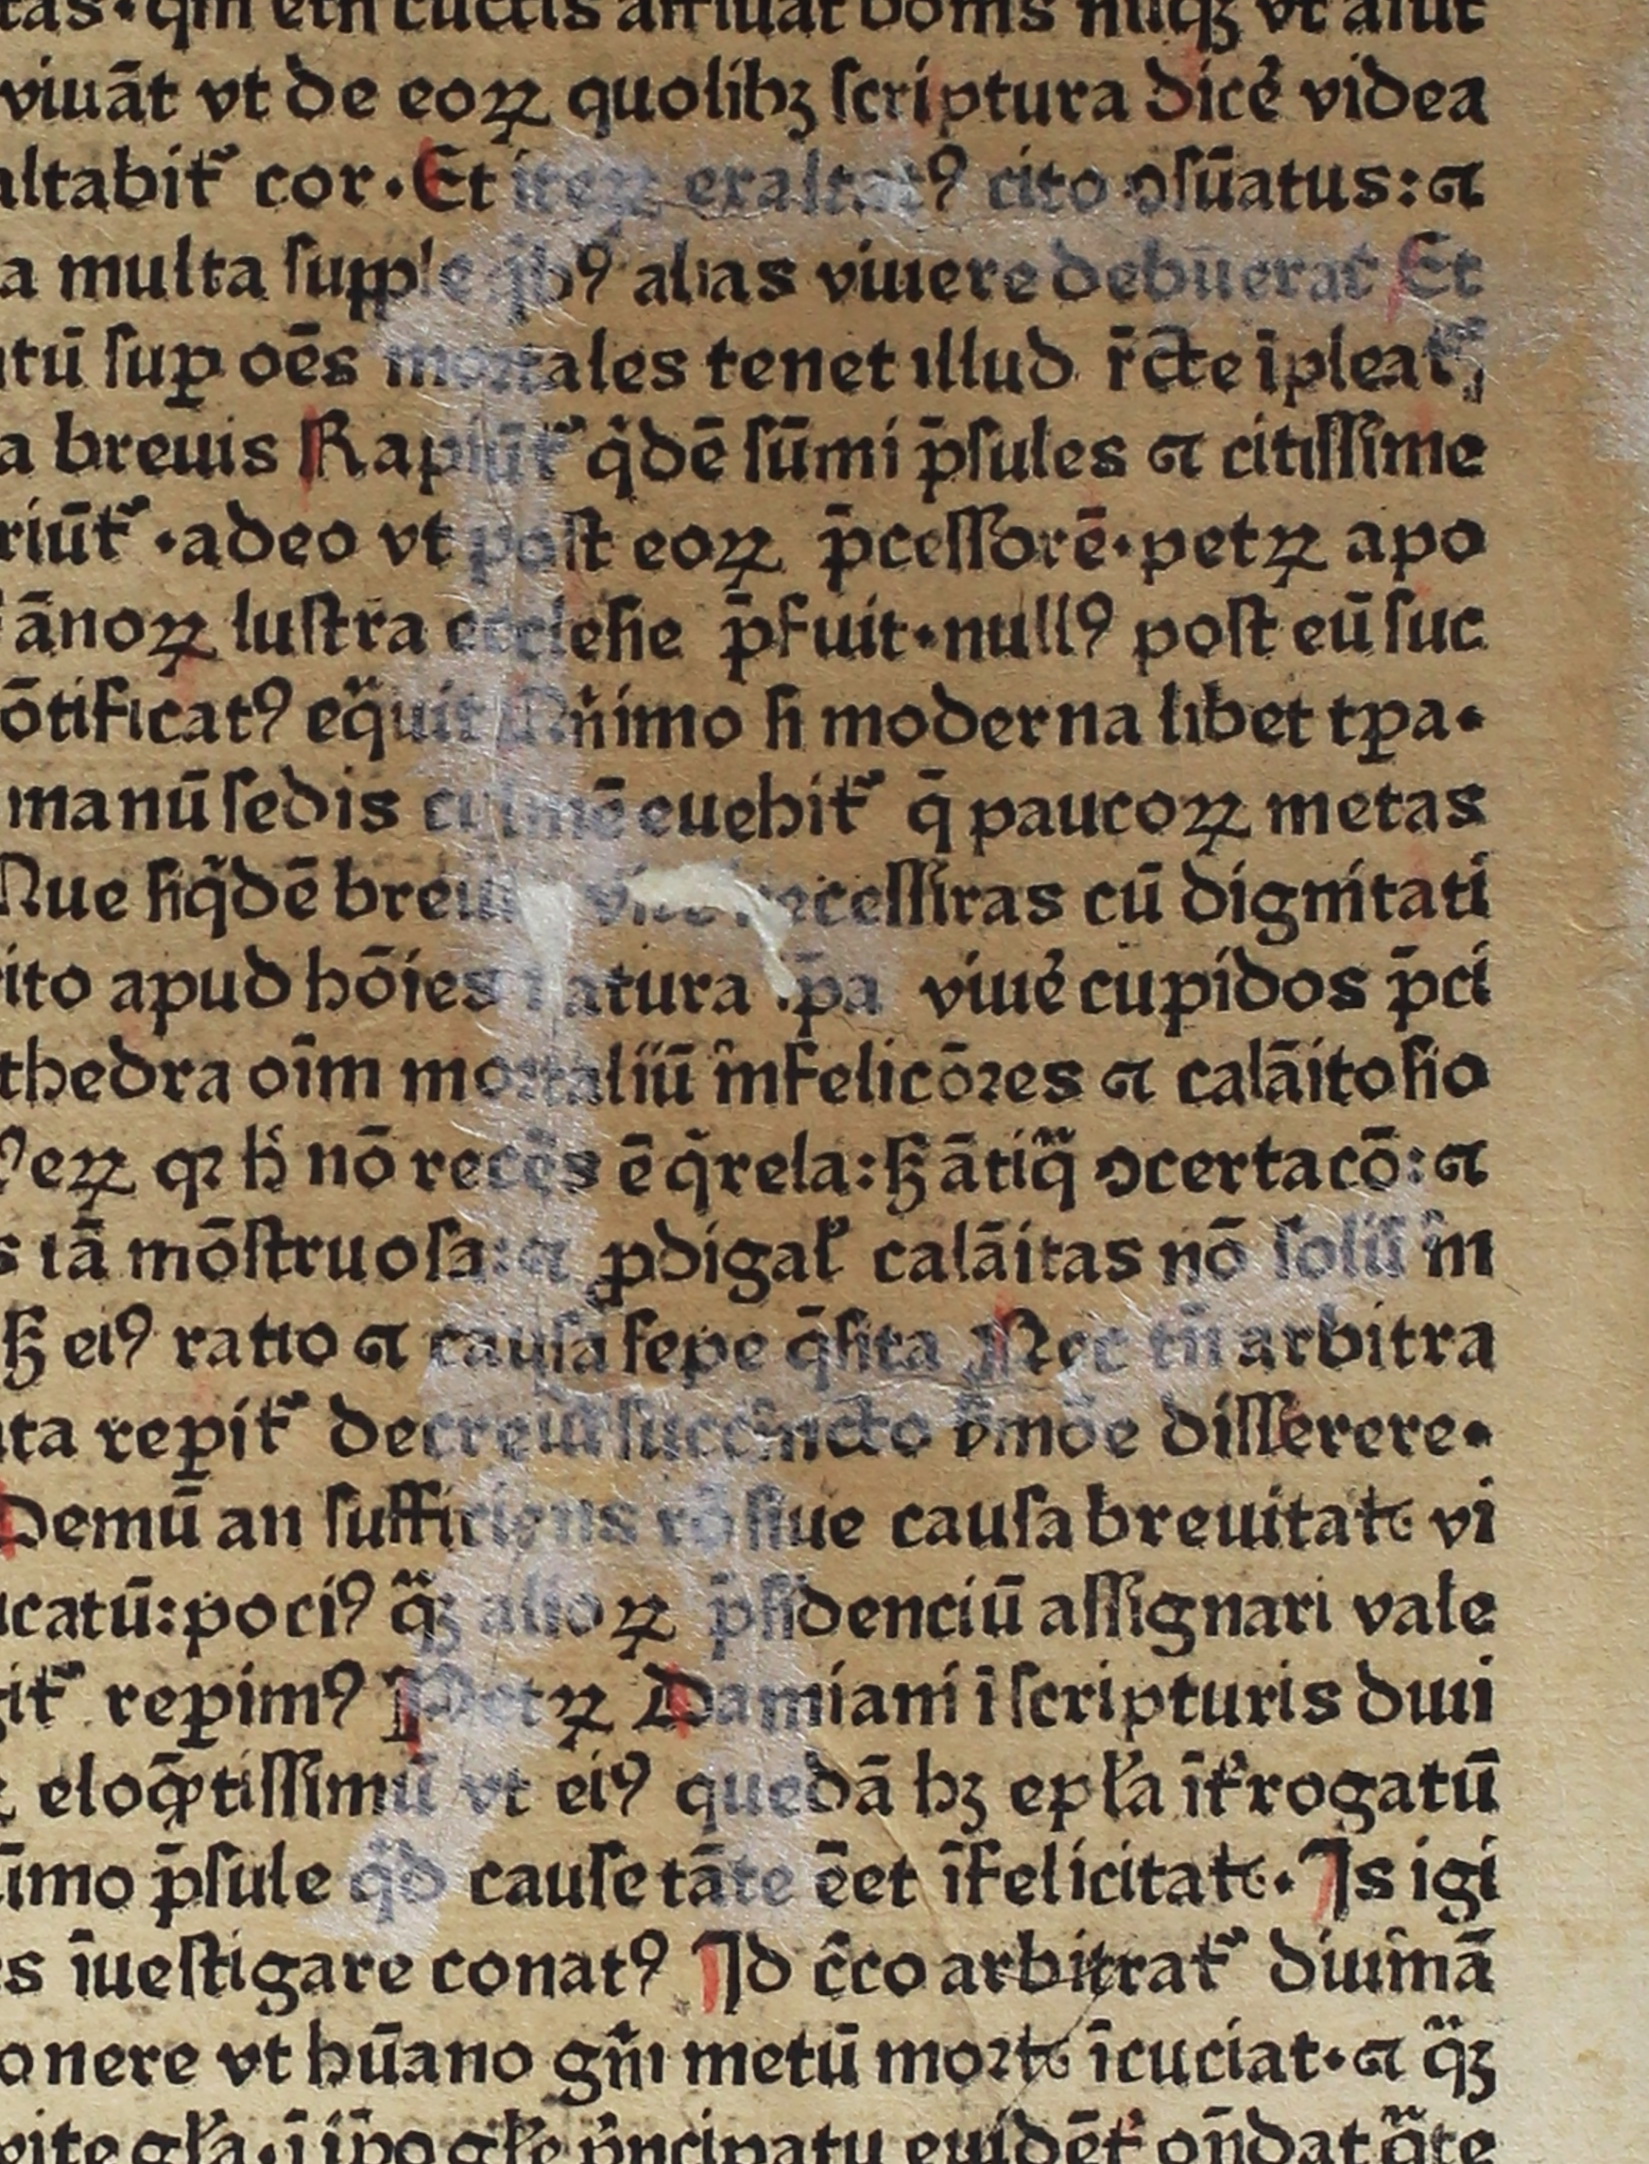 tas·qm̄ em̄ cūctis affluāt bonis nūqꝫ vt aiūt
viuāt vt de eoꝝ quolibꝫ ſcriptura dicẻ videa
altabit᷑ cor·Et iteꝝ exaltatꝰ cito ꝯſūatus:⁊
a multa ſupple qͥbꝰ alias viuere debuerat Et
tū ſuꝑ oēs mortales tenet illud r̄cte īpleat᷑
a breuis Rapiūt᷑ qͥdē ſūmi p̄ſules ⁊ citiſſime
riūt᷑·adeo vt poſt eoꝝ p̄ceſſorē·petꝝ apo
ānoꝝ luſtra eccleſie p̄fuit·nullꝰ poſt eū ſuc
ōtificatꝰ eq̈uit n̄imo ſi moderna libet tꝑa·
manū ſedis culmē euehit᷑ q̄ paucoꝝ metas
Nue ſiqͥdē breuis vite neceſſitas cū dignitati
ito apud hōies natura ip̄a viuẻ cupidos p̄ci
thedra oīm mortaliū īnfelicōres ⁊ calāitoſio
eꝝ qꝛ h̍ nō recēs ē q̄rela:ꝭꝫ ātiq̈ ꝯcertacō:⁊
s tā mōſtruoſa:⁊ ꝓdigal᷑ calāitas nō ſolū īn
ꝭꝫ eiꝰ ratio ⁊ cauſa ſepe q̄ſita Nec tn̄ arbitra
ta reꝑit᷑ decreui ſuccīncto ẜmōe diſſerere·
Demū an ſufficiens rō ſiue cauſa breuitatꝭ vi
icatū:pociꝰ q̈ꝫ alioꝝ p̄ſidenciū aſſignari vale
git᷑ reꝑimꝰ Petꝝ Damiani ī ſcripturis diui
eloq̄tiſſimū vt eiꝰ quedā hꝫ epl̄a īt᷑rogatū
īmo p̄ſule qͥd cauſe tāte ēet īfelicitatꝭ·Is igi
s īueſtigare conatꝰ Id c̄co arbitrat᷑ diuīnā
onere vt hūano gn̄i metū mortꝭ īcuciat·⁊ q̈ꝫ
vite gl̄a·ī ip̄o gl̄e p̄ncipatu euidēt᷑ on̄dat q̈te